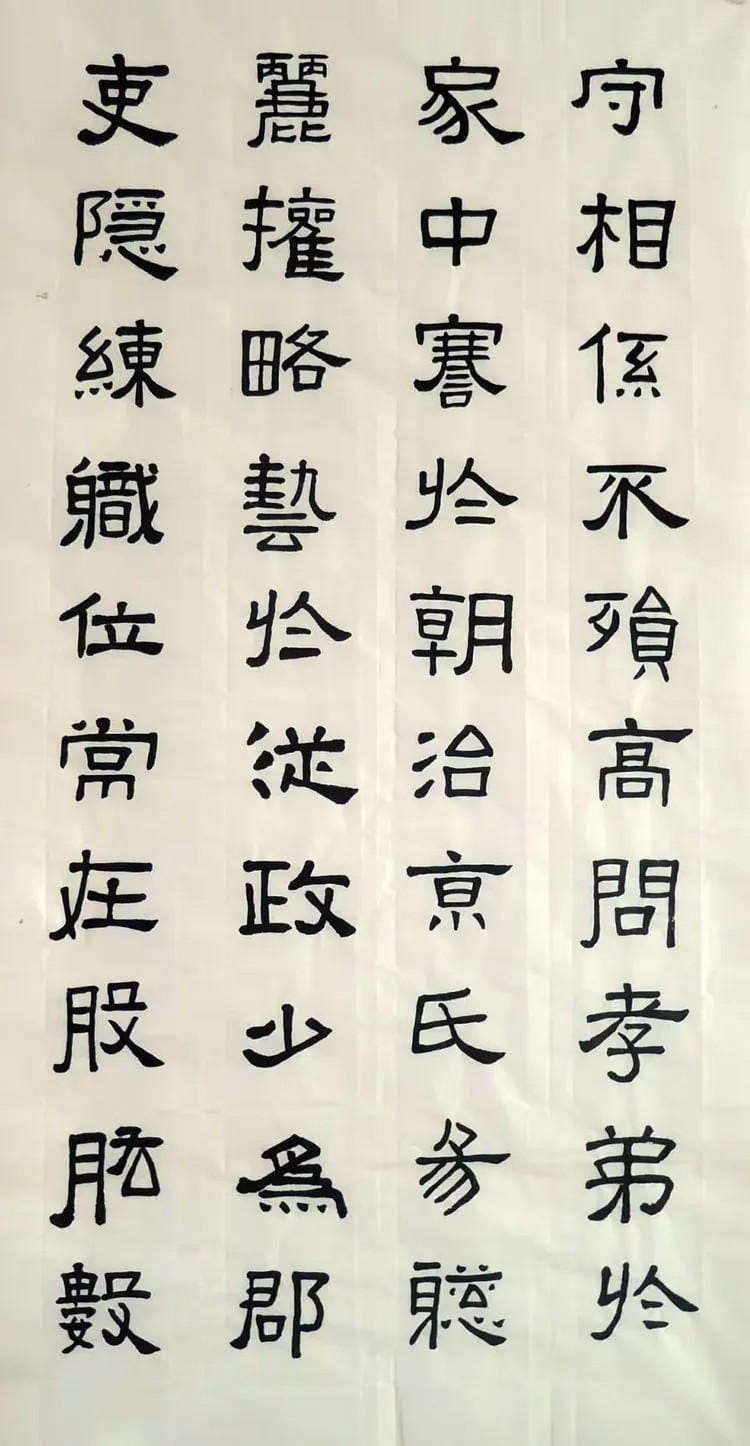 守相係不殞高問孝弟於
家中謇於朝治京氏易聰
麗權略藝於從政少為郡
吏隱練職位常在股肱數